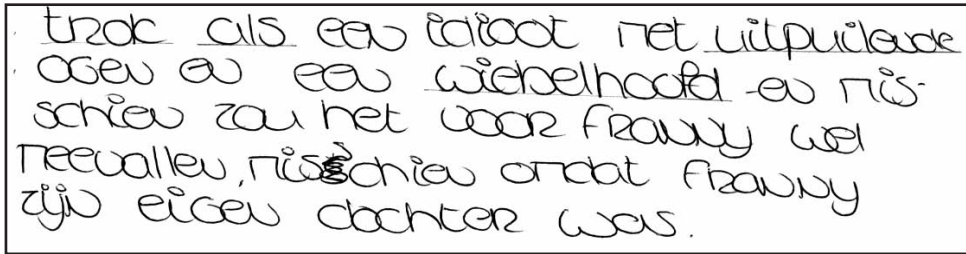 trok als een idioot met uitpuilende
ogen en een wiebelhoofd - en mis-
schien zou het voor Franny wel
meevallen, misschien omdat Franny
zijn eigen dochter was.